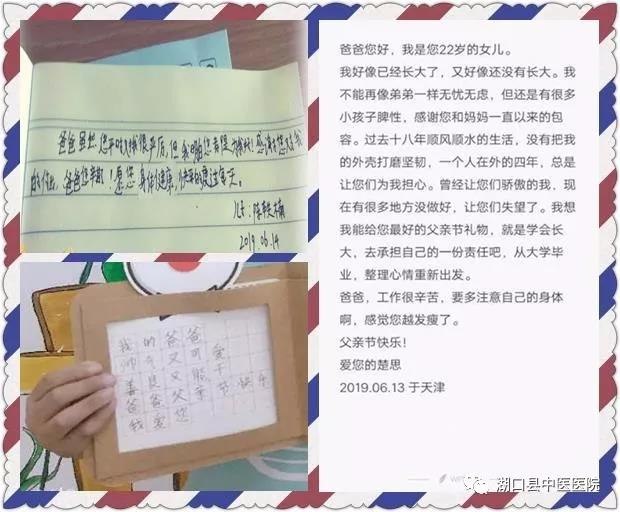 爸爸虽然您平时对我很严厉,但我明白您都是为我好!感谢
的付出,爸爸您辛苦了!愿您身体健康,快乐的度过每一天。
儿子:陈
2019.06.14
我的爸爸
帅气又可爱
善良又能干
爸爸父亲节快乐
我爱您
爸爸您好，我是您22岁的女儿。
我好像已经长大了，又好像还没有长大。我
不能再像弟弟一样无忧无虑，但还是有很多
小孩子脾性，感谢您和妈妈一直以来的包
容。过去十八年顺风顺水的生活，没有把我
的外壳打磨坚韧，一个人在外的四年，总是
让您们为我担心。曾经让您们骄傲的我，现
在有很多地方没做好，让您们失望了。我想
我能给您最好的父亲节礼物，就是学会长
大，去承担自己的一份责任吧，从大学毕
业，整理心情重新出发。
爸爸，工作很辛苦，要多注意自己的身体
啊，感觉您越发瘦了。
父亲节快乐！
爱您的楚思
2019.06.13 于天津
湖口县中医医院